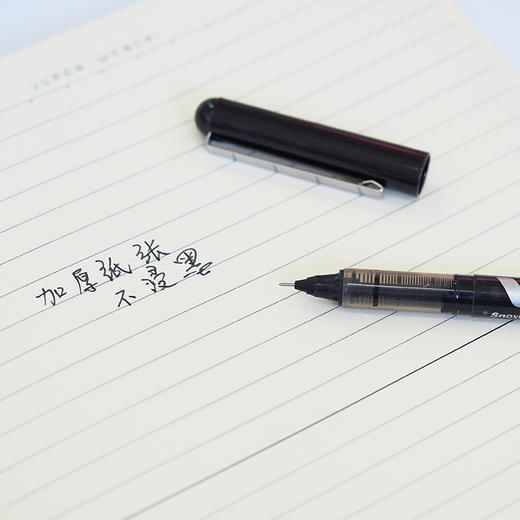 JUREN WENCAI
加厚纸张
不浸墨
Snow